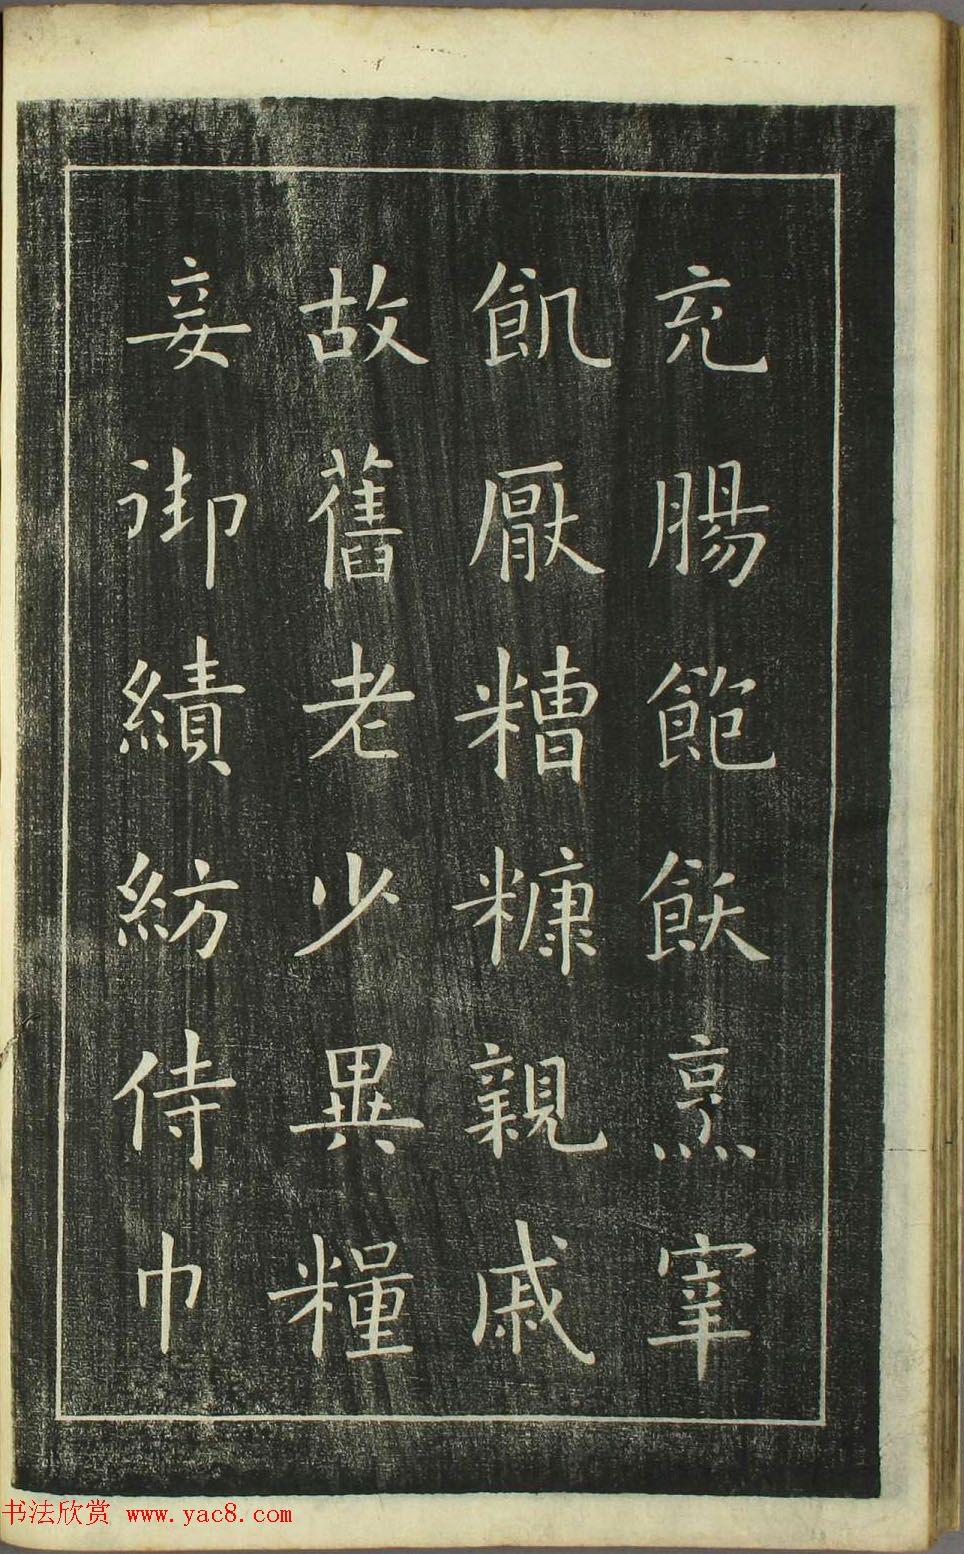 充腸飽飫烹宰
飢厭糟糠親戚
故舊老少異糧
妾御績紡侍巾
书法欣赏 www.yac8.com